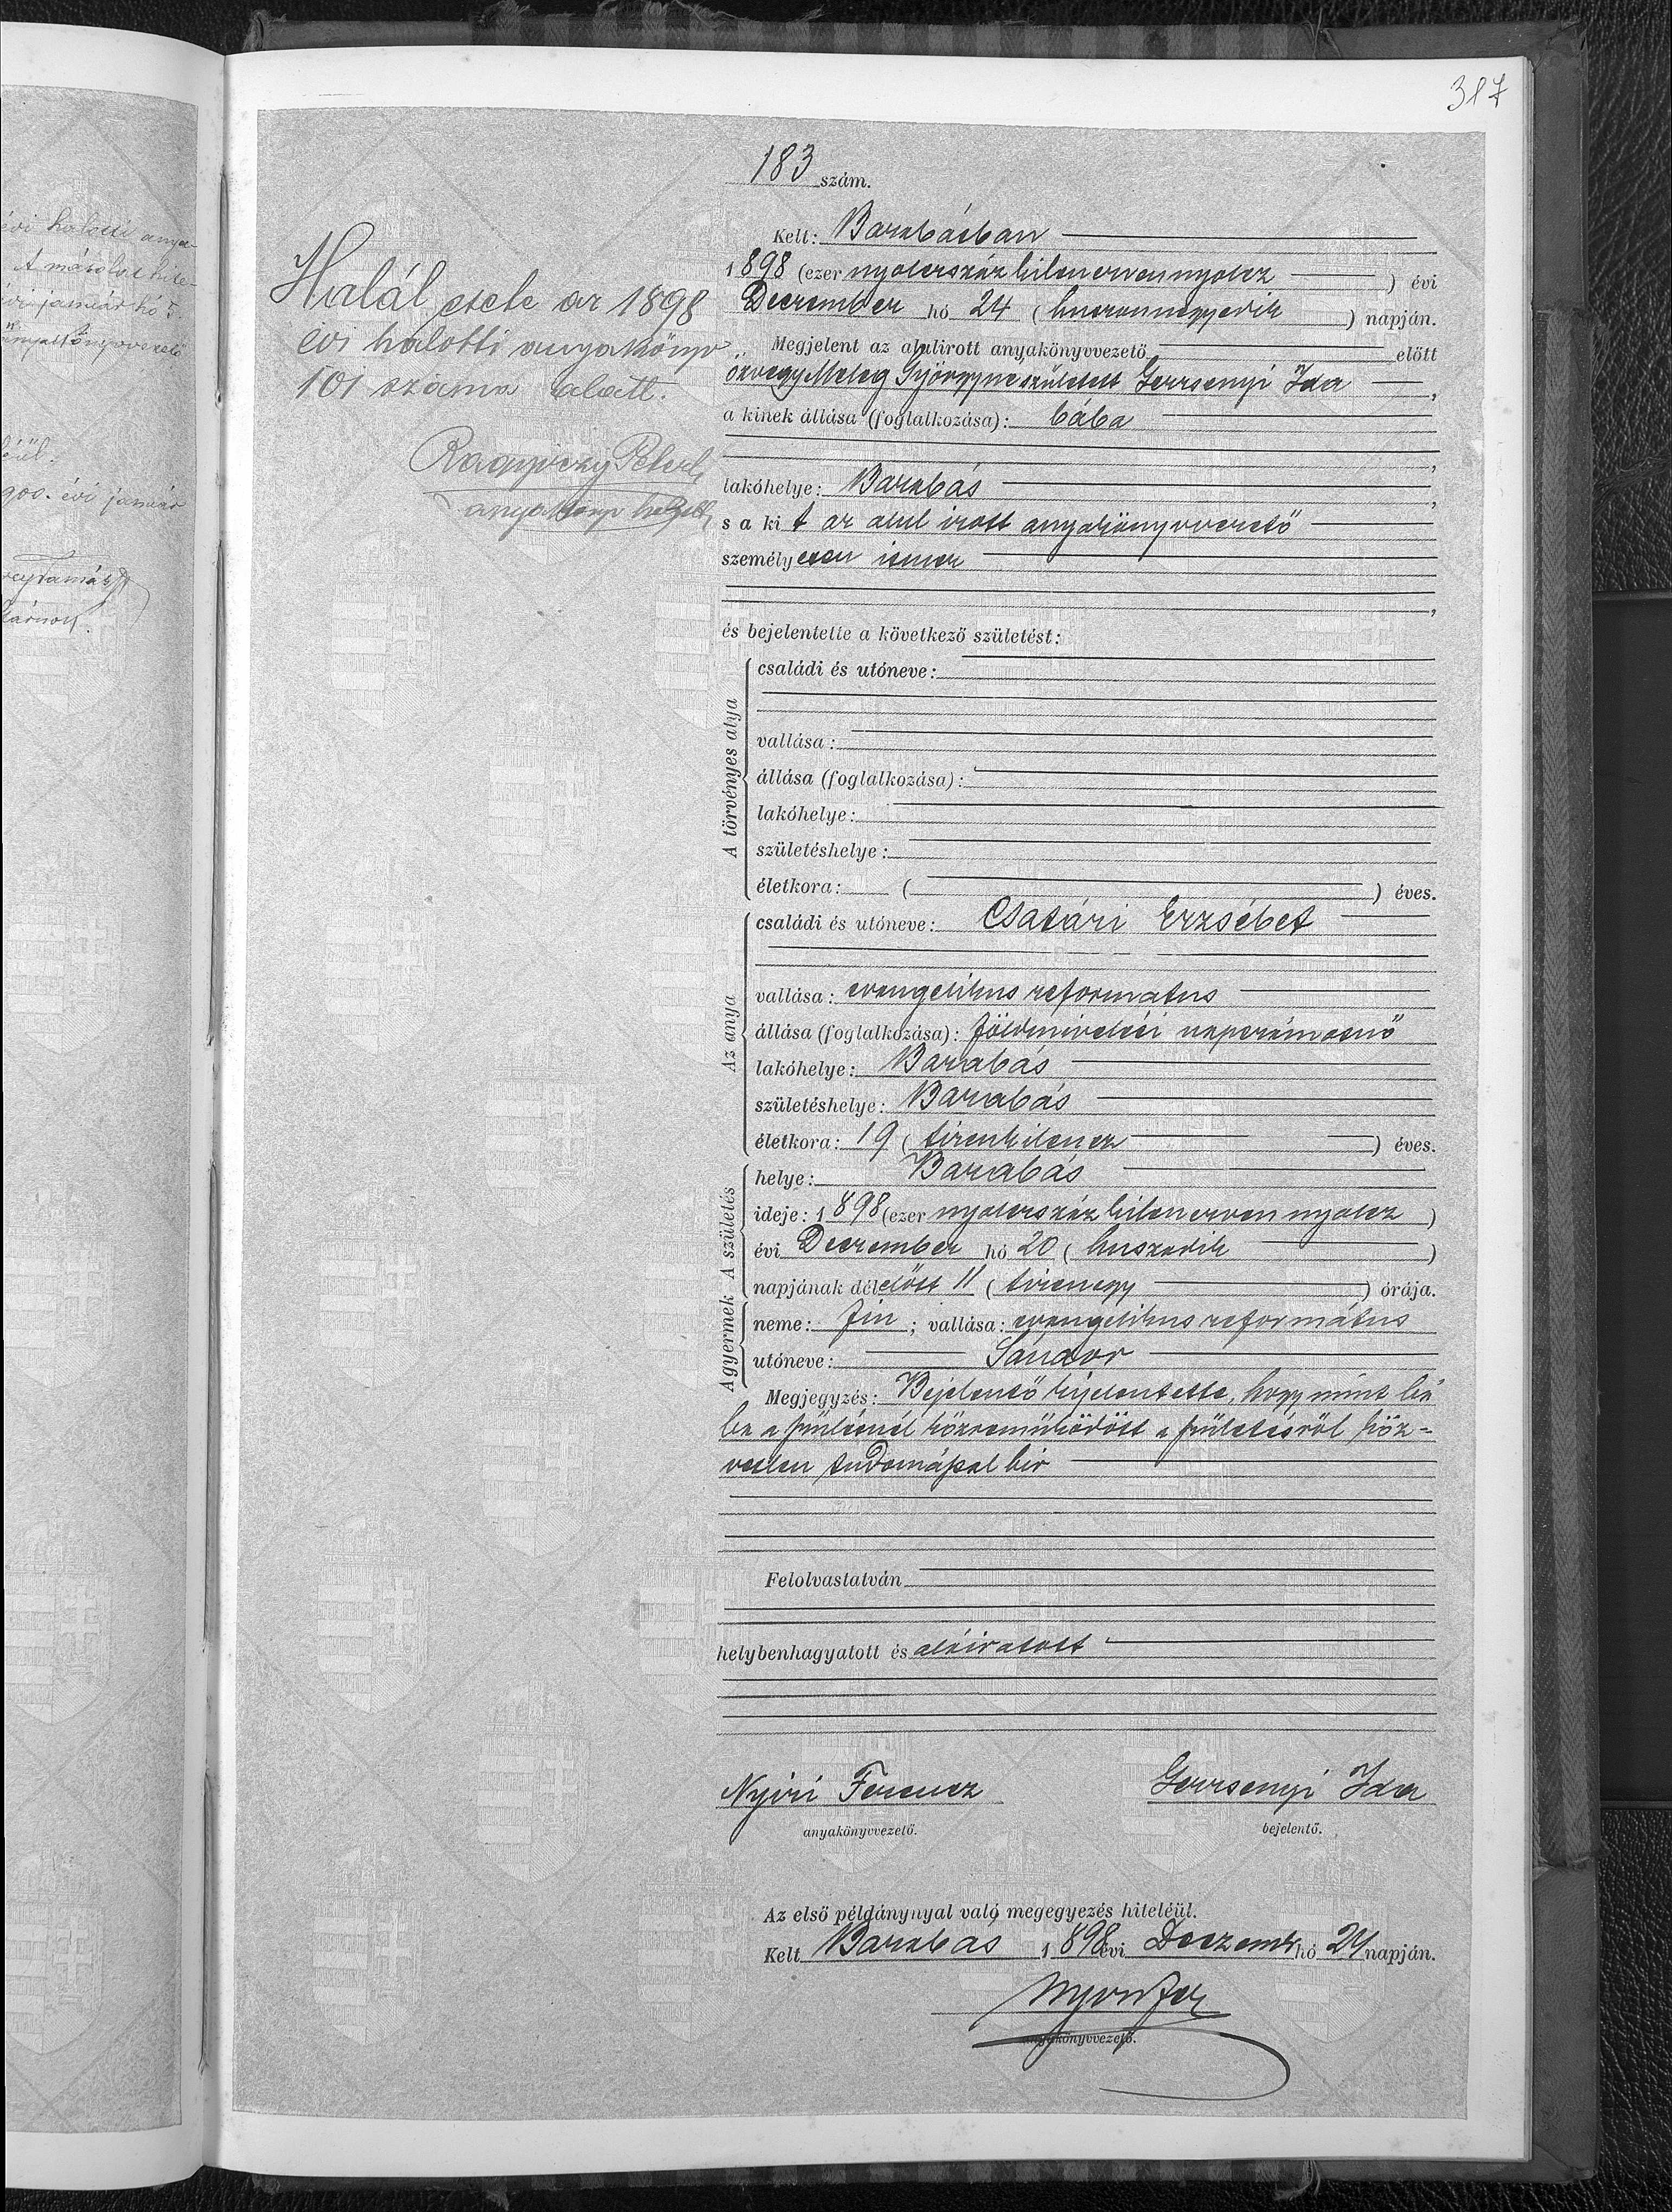 317
183 szám.
Kelt: Barabásban
1898 (ezer nyolczszáz kilenczvennyolcz) évi
Deczember hó 24 (huszonnegyedik) napján.
Megjelent az alulirott anyakönyvvezető előtt
özvegy Meleg Györgyné született Gerzsenyi Ida,
a kinek állása (foglalkozása): bába
lakóhelye: Barabás,
s a kit az alul irott anyakönyvvezető
személyesen ismer
és bejelentette a következő születést:
A törvényes atya
családi és utóneve:
vallása:
állása (foglalkozása):
lakóhelye:
születéshelye:
életkora: ( ) éves.
Az anya
családi és utóneve: Csatári Erzsébet
vallása: evangelikus reformatus
állása (foglalkozása): földmivelési napszámosnő
lakóhelye: Barabás
születéshelye: Barabás
életkora: 19 (tizenkilencz) éves.
A gyermek A születés
helye: Barabás
ideje: 1898 (ezer nyolczszáz kilenczven nyolcz)
évi Deczember hó 20 (huszadik)
napjának délelőtt 11 (tizenegy) órája.
neme: fiu; vallása: evangelikus református
utóneve: Sándor
Megjegyzés: Bejelentő kijelentette, hogy mint bá
ba a szülésnél közreműködött a születésről köz-
vetlen tudomással bir
Felolvastatván
helybenhagyatott és aláiratott
Nyiri Ferencz
anyakönyvvezető.
Gerzsenyi Ida
bejelentő.
Az első példánynyal való megegyezés hiteléül.
Kelt Barabás 1898 évi Deczemb hó 24 napján.
Nyiri Fer
anyakönyvvezető.
Halál esete az 1898
évi halotti anyakönyv
101 száma alatt.
Péter
anyakönyv helyett
évi halotti anya-
A másolat hite-
évi január hó 5.
anyakönyvvezető
900. évi január
Tamás